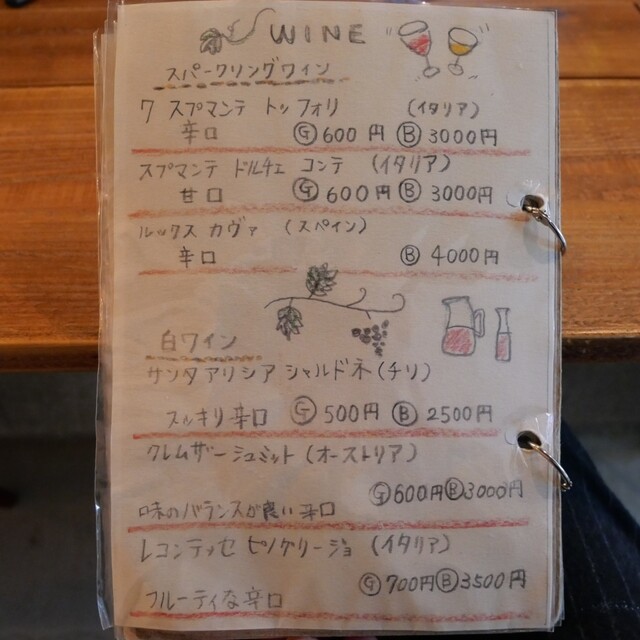 WINE
スパークリングワイン
7 スプマンテ トッフォリ (イタリア)
辛口 Ⓖ600円 Ⓑ3000円
スプマンテ ドルチェ コンテ (イタリア)
甘口 Ⓖ600円 Ⓑ3000円
ルックス カヴァ (スペイン)
辛口 Ⓑ4000円
白ワイン
サンタ アリシア シャルドネ (チリ)
スッキリ辛口 Ⓖ500円 Ⓑ2500円
クレムザー シュミット (オーストリア)
Ⓖ600円 Ⓑ3000円
味のバランスが良い辛口
レコンテッセ ピノグリージョ (イタリア)
Ⓖ700円 Ⓑ3500円
フルーティな辛口